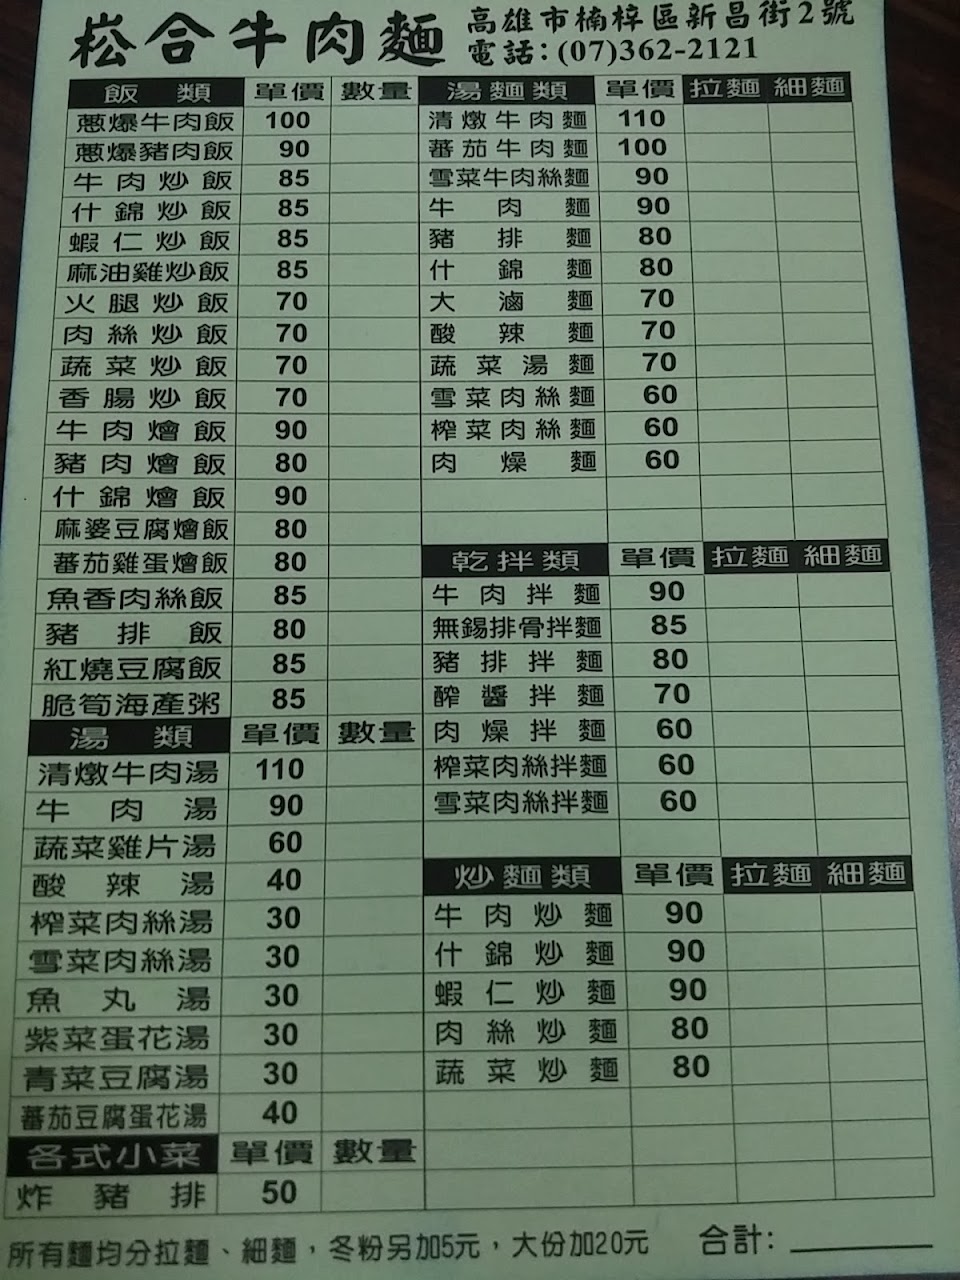 崧合牛肉麵
高雄市楠梓區新昌街2號
電話:(07)362-2121
飯類 單價 數量
蔥爆牛肉飯 100
蔥爆豬肉飯 90
牛肉炒飯 85
什錦炒飯 85
蝦仁炒飯 85
麻油雞炒飯 85
火腿炒飯 70
肉絲炒飯 70
蔬菜炒飯 70
香腸炒飯 70
牛肉燴飯 90
豬肉燴飯 80
什錦燴飯 90
麻婆豆腐燴飯 80
蕃茄雞蛋燴飯 80
魚香肉絲飯 85
豬排飯 80
紅燒豆腐飯 85
脆筍海產粥 85
湯類 單價 數量
清燉牛肉湯 110
牛肉湯 90
蔬菜雞片湯 60
酸辣湯 40
榨菜肉絲湯 30
雪菜肉絲湯 30
魚丸湯 30
紫菜蛋花湯 30
青菜豆腐湯 30
蕃茄豆腐蛋花湯 40
各式小菜 單價 數量
炸豬排 50
湯麵類 單價 拉麵 細麵
清燉牛肉麵 110
蕃茄牛肉麵 100
雪菜牛肉絲麵 90
牛肉麵 90
豬排麵 80
什錦麵 80
大滷麵 70
酸辣麵 70
蔬菜湯麵 70
雪菜肉絲麵 60
榨菜肉絲麵 60
肉燥麵 60
乾拌類 單價 拉麵 細麵
牛肉拌麵 90
無錫排骨拌麵 85
豬排拌麵 80
醡醬拌麵 70
肉燥拌麵 60
榨菜肉絲拌麵 60
雪菜肉絲拌麵 60
炒麵類 單價 拉麵 細麵
牛肉炒麵 90
什錦炒麵 90
蝦仁炒麵 90
肉絲炒麵 80
蔬菜炒麵 80
所有麵均分拉麵、細麵，冬粉另加5元，大份加20元
合計: